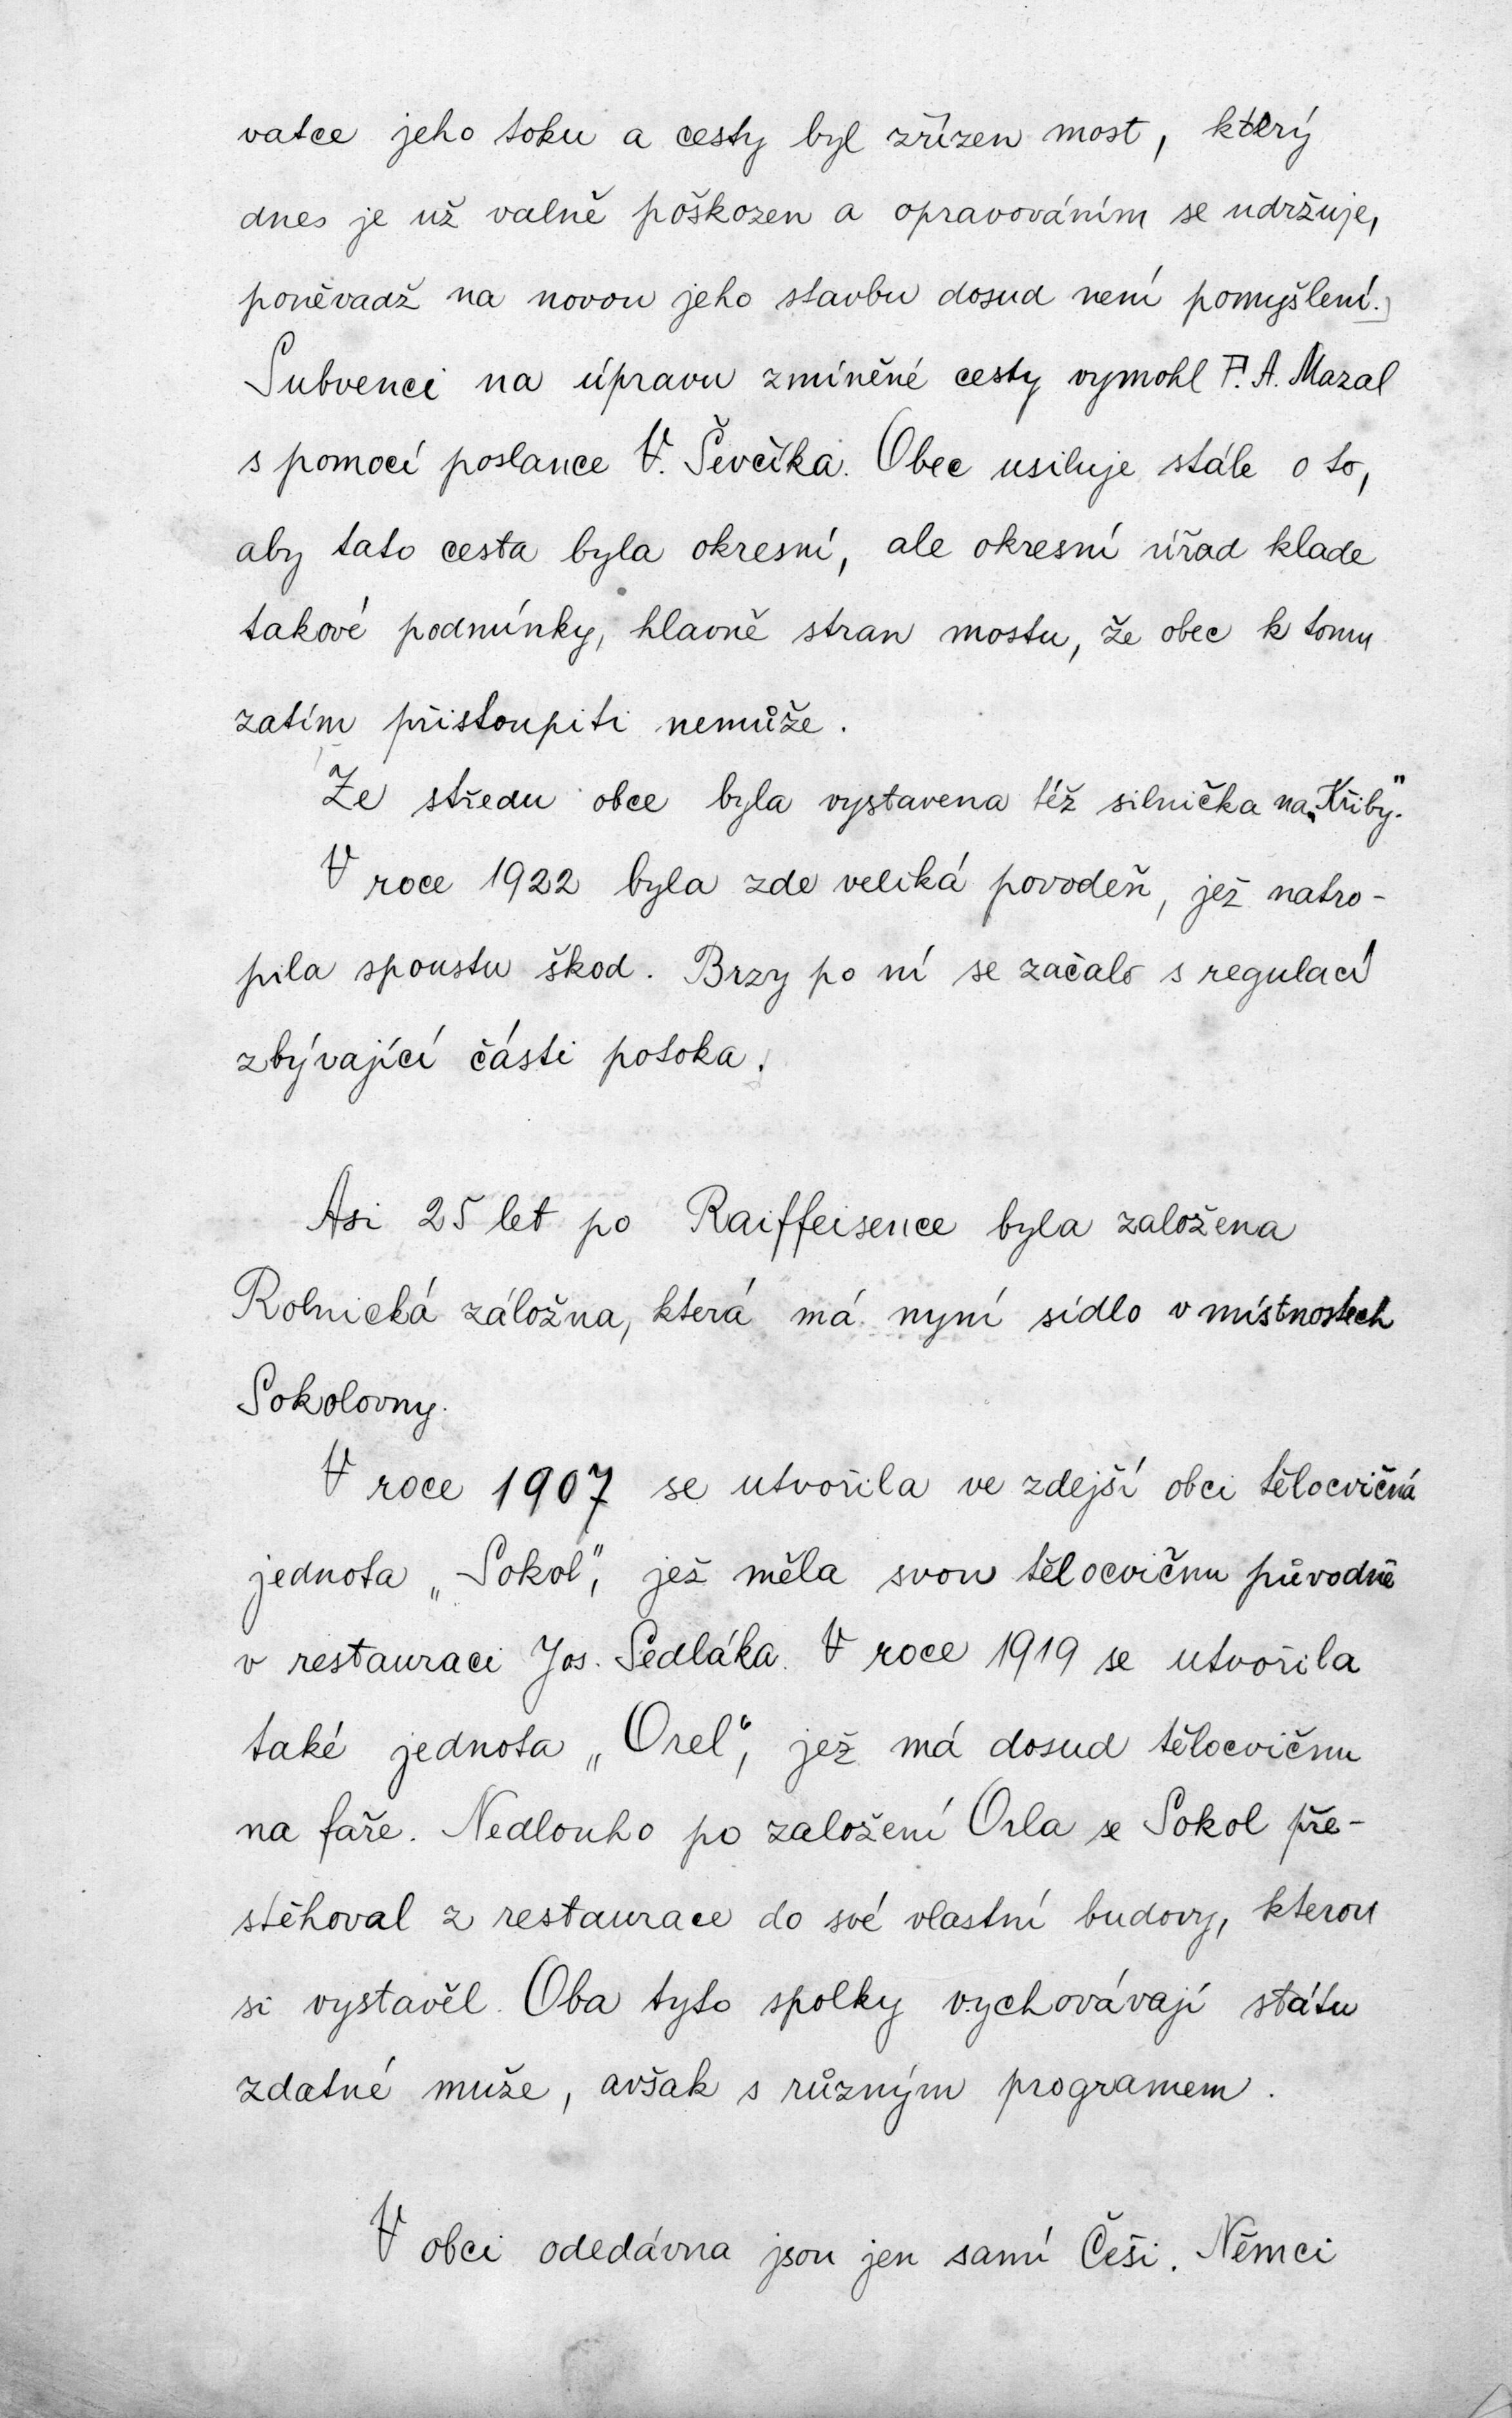 vatce jeho toku a cesty byl zřízen most, který
dnes je už valně poškozen a opravováním se udržuje,
poněvadž na novou jeho stavbu dosud není pomyšlení.
Subvenci na úpravu zmíněné cesty vymohl F. A. Mazal
s pomocí poslance V. Ševčíka. Obec usiluje stále o to,
aby tato cesta byla okresní, ale okresní úřad klade
takové podmínky, hlavně stran mostu, že obec k tomu
zatím přistoupiti nemůže.
Ze středu obce byla vystavena též silnička na „Křiby".
V roce 1922 byla zde veliká povodeň, jež natro-
pila spoustu škod. Brzy po ní se začalo s regulací
zbývající části potoka.
Asi 25 let po Raiffeisence byla založena
Rolnická záložna, která má nyní sídlo v místnostech
Sokolovny.
V roce 1907 se utvořila ve zdejší obci tělocvičná
jednota „Sokol", jež měla svou tělocvičnu původně
v restauraci Jos. Sedláka. V roce 1919 se utvořila
také jednota „Orel", jež má dosud tělocvičnu
na faře. Nedlouho po založení Orla se Sokol pře-
stěhoval z restaurace do své vlastní budovy, kterou
si vystavěl. Oba tyto spolky vychovávají státu
zdatné muže, avšak s různým programem.
V obci odedávna jsou jen samí Češi. Němci